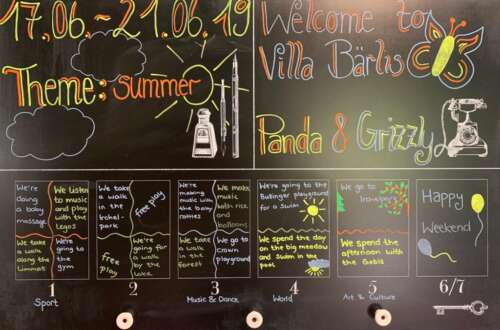 17.06. - 21.06.19
Theme: summer
Welcome to
Villa Bärlis
Panda & Grizzly
We're
doing
a baby
massage
We listen
to music
and play
with the
Legos
We take
a walk
along the
Limmat
We're
going
to the
gym
We take
a walk
in the
Irchel-
park
free play
free
play
We're
going for
a walk
by the
lake
We're
making
music with
the baby
rattles
We make
music
with rice
and
balloons
We take
a walk
in the
forest
We go to
crown
playground
We're going to the
Bullinger playground
for a swim
We spend the day
on the big meadow
and swim in the
pool
We go to
We spend the
afternoon with
the Gobis
Happy
Weekend
1
2
3
4
5
6/7
Sport
Music & Dance
World
Art & Culture